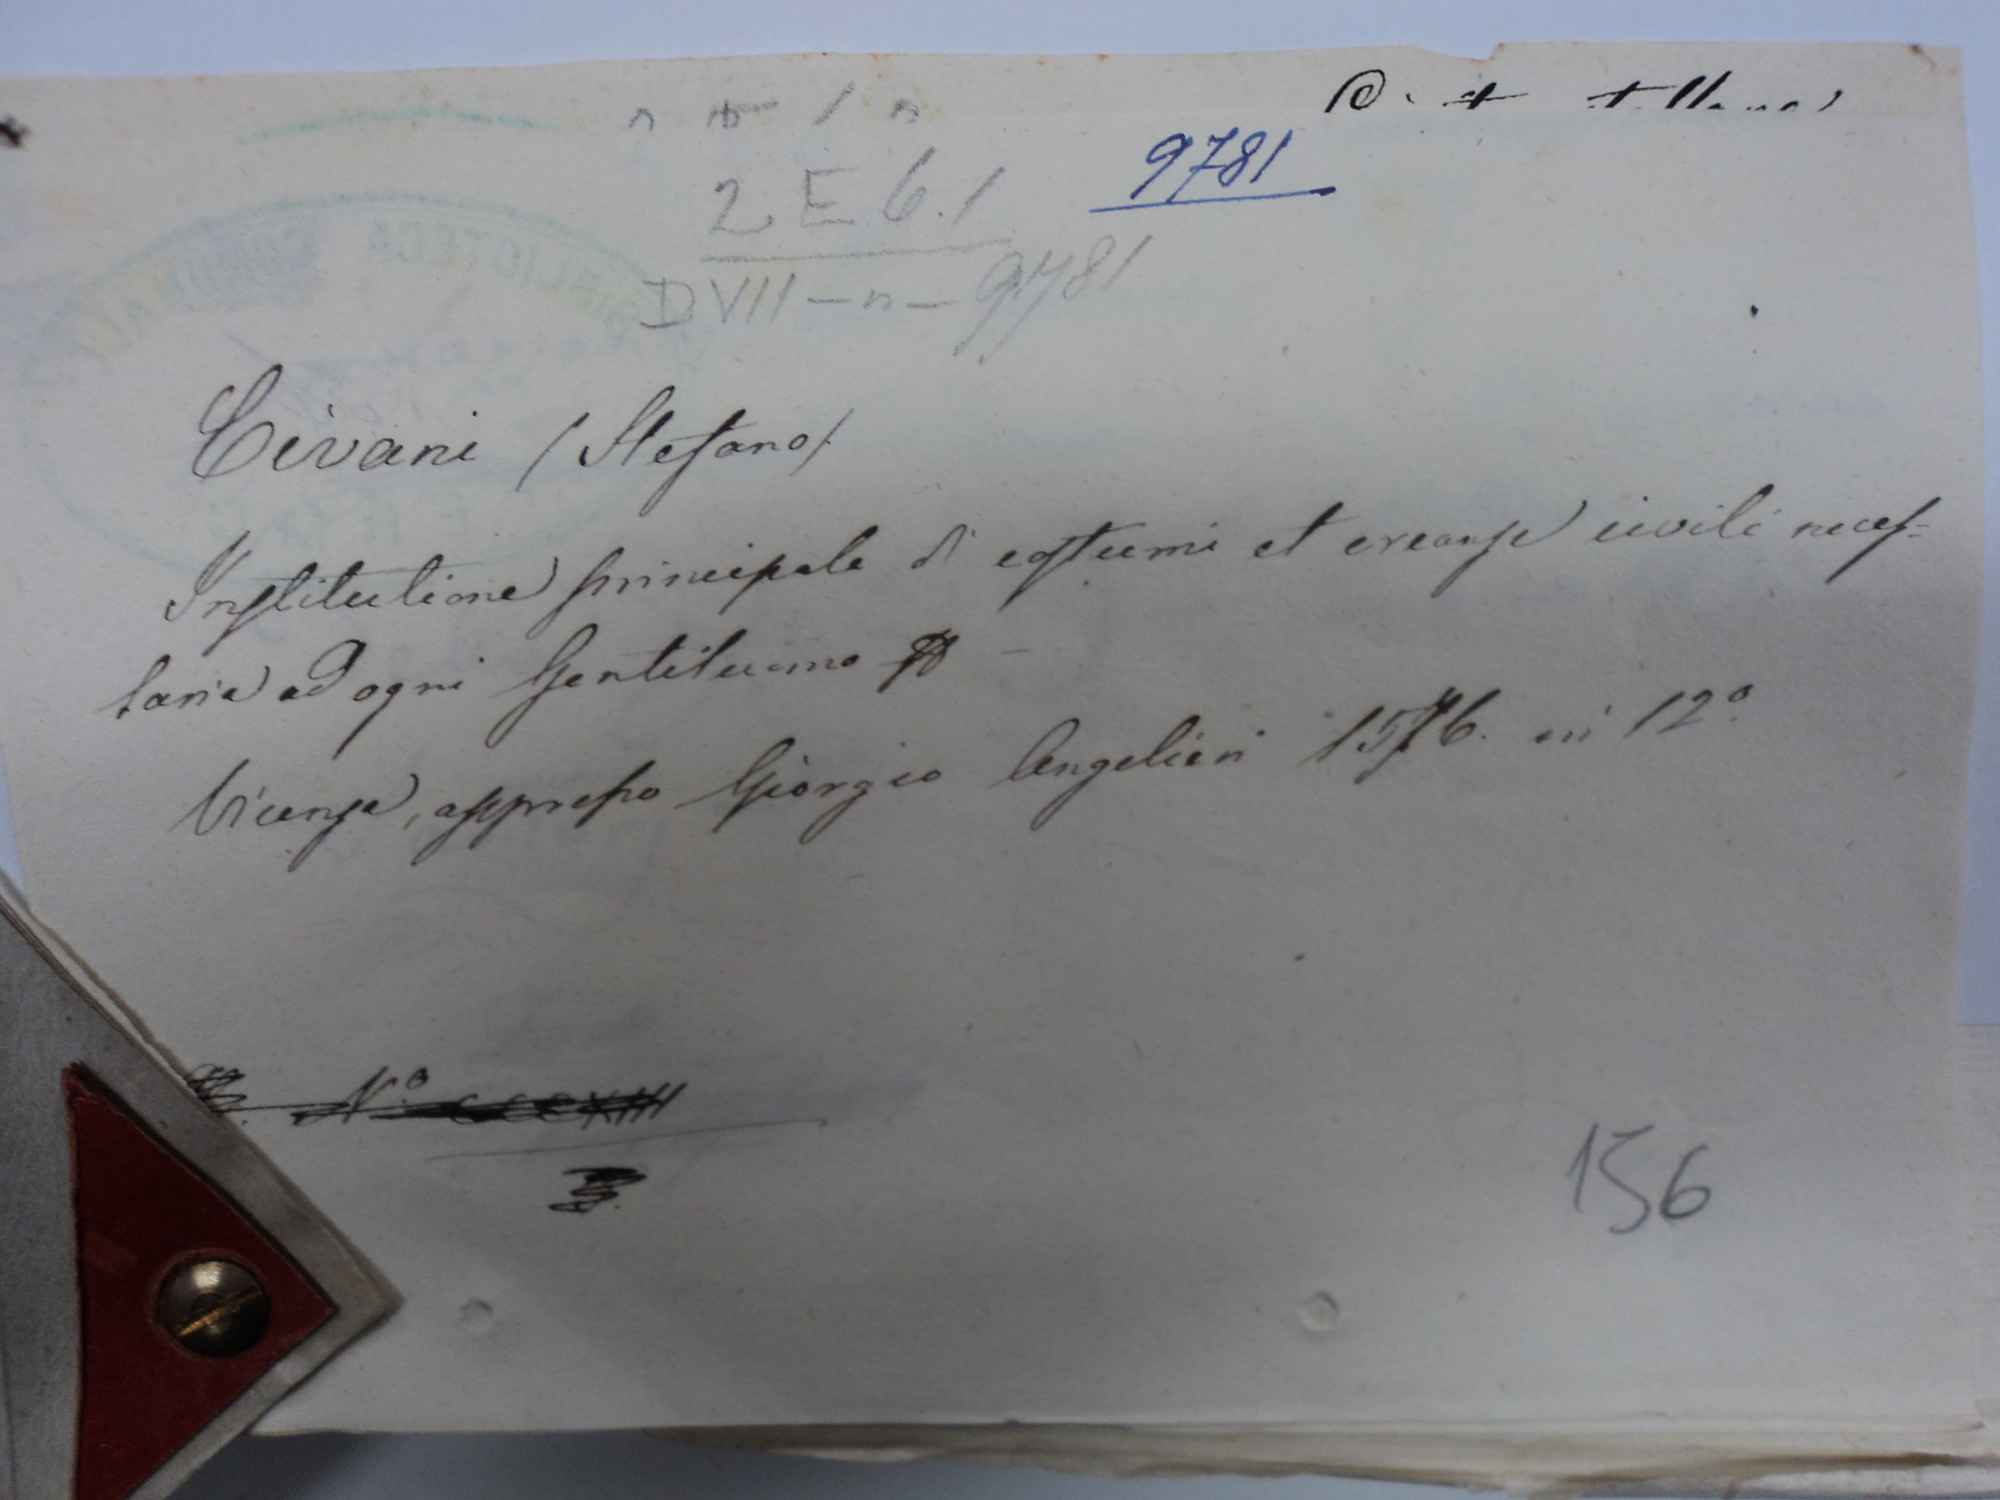 2 E 6.1
9781
D VII — n — 9781
Civani (Stefano).
Institutione principale di costumi et creanze civili neces-
saria ad ogni Gentiluomo
Vicenza, appresso Giorgio Angelieri 1576. in 12.º
N.º CCCXIII
156